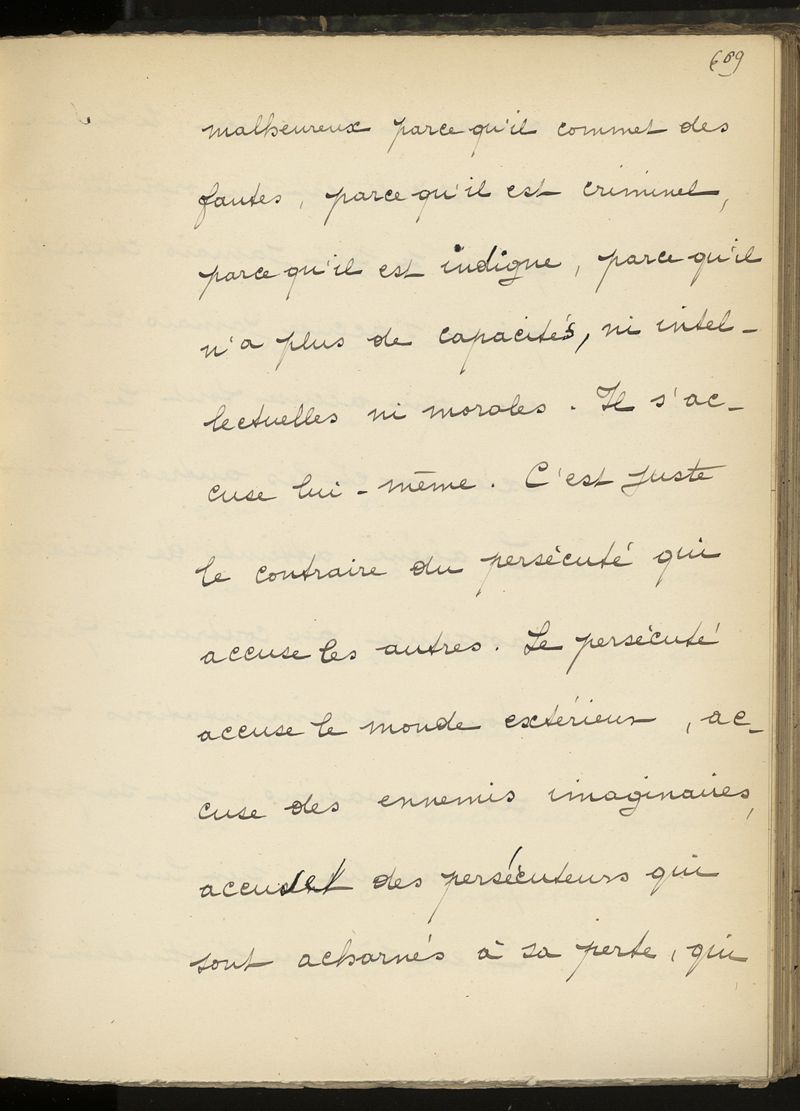 689
malheureux parce qu'il commet des
fautes, parce qu'il est criminel,
parce qu'il est indigne, parce qu'il
n'a plus de capacités, ni intel-
lectuelles ni morales. Il s'ac-
cuse lui-même. C'est juste
le contraire du persécuté qui
accuse les autres. Le persécuté
accuse le monde extérieur, ac-
cuse des ennemis imaginaires,
des persécuteurs qui
sont acharnés à sa perte, qui